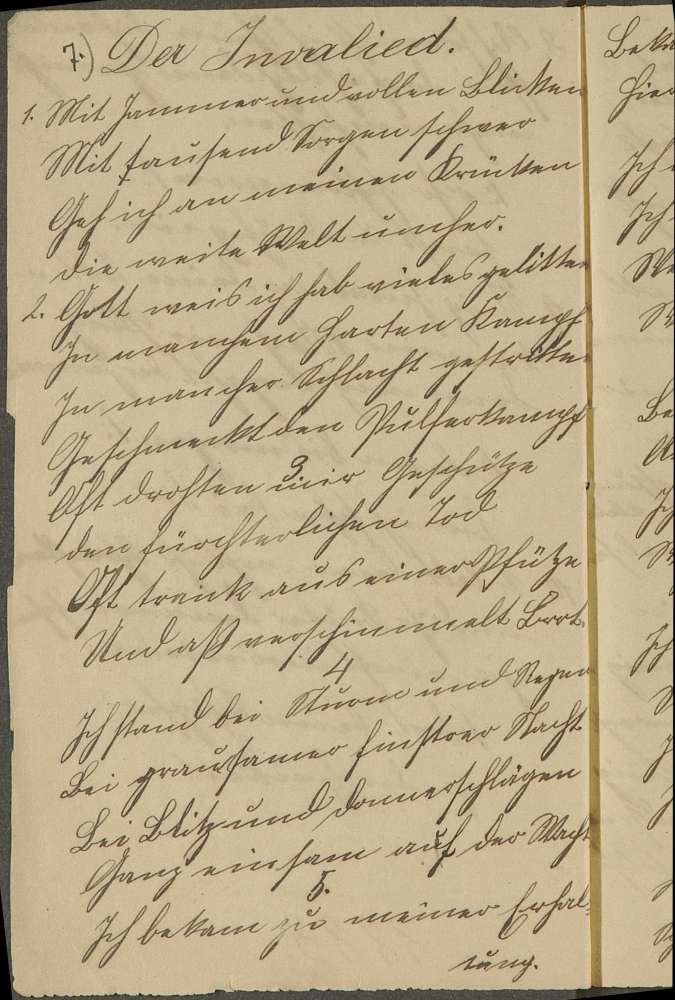 7.) Der Invalied.
1. Mit Jammer und vollen Blicken
Mit tausend Sorgen schwer
Geh ich an meinen Krücken
die weite Welt umher.
2. Gott weis ich hab vieles gelitten
In manchem harten Kampf
In mancher Schlacht gestritten
Geschmeckt den Pulferkampf
3.
Oft drohten mir Geschütze
den fürchterlichen Tod
Oft trank aus einer Pfütze
Und aß verschimmelt Brot.
4
Ich stand bei Sturm und Regen
Bei grausamer finstrer Nacht
Bei Blitz und Donnerschlägen
Ganz einsam auf der Wacht
5.
Ich bekam zu meiner Erhal-
tung.
Ich
Ich